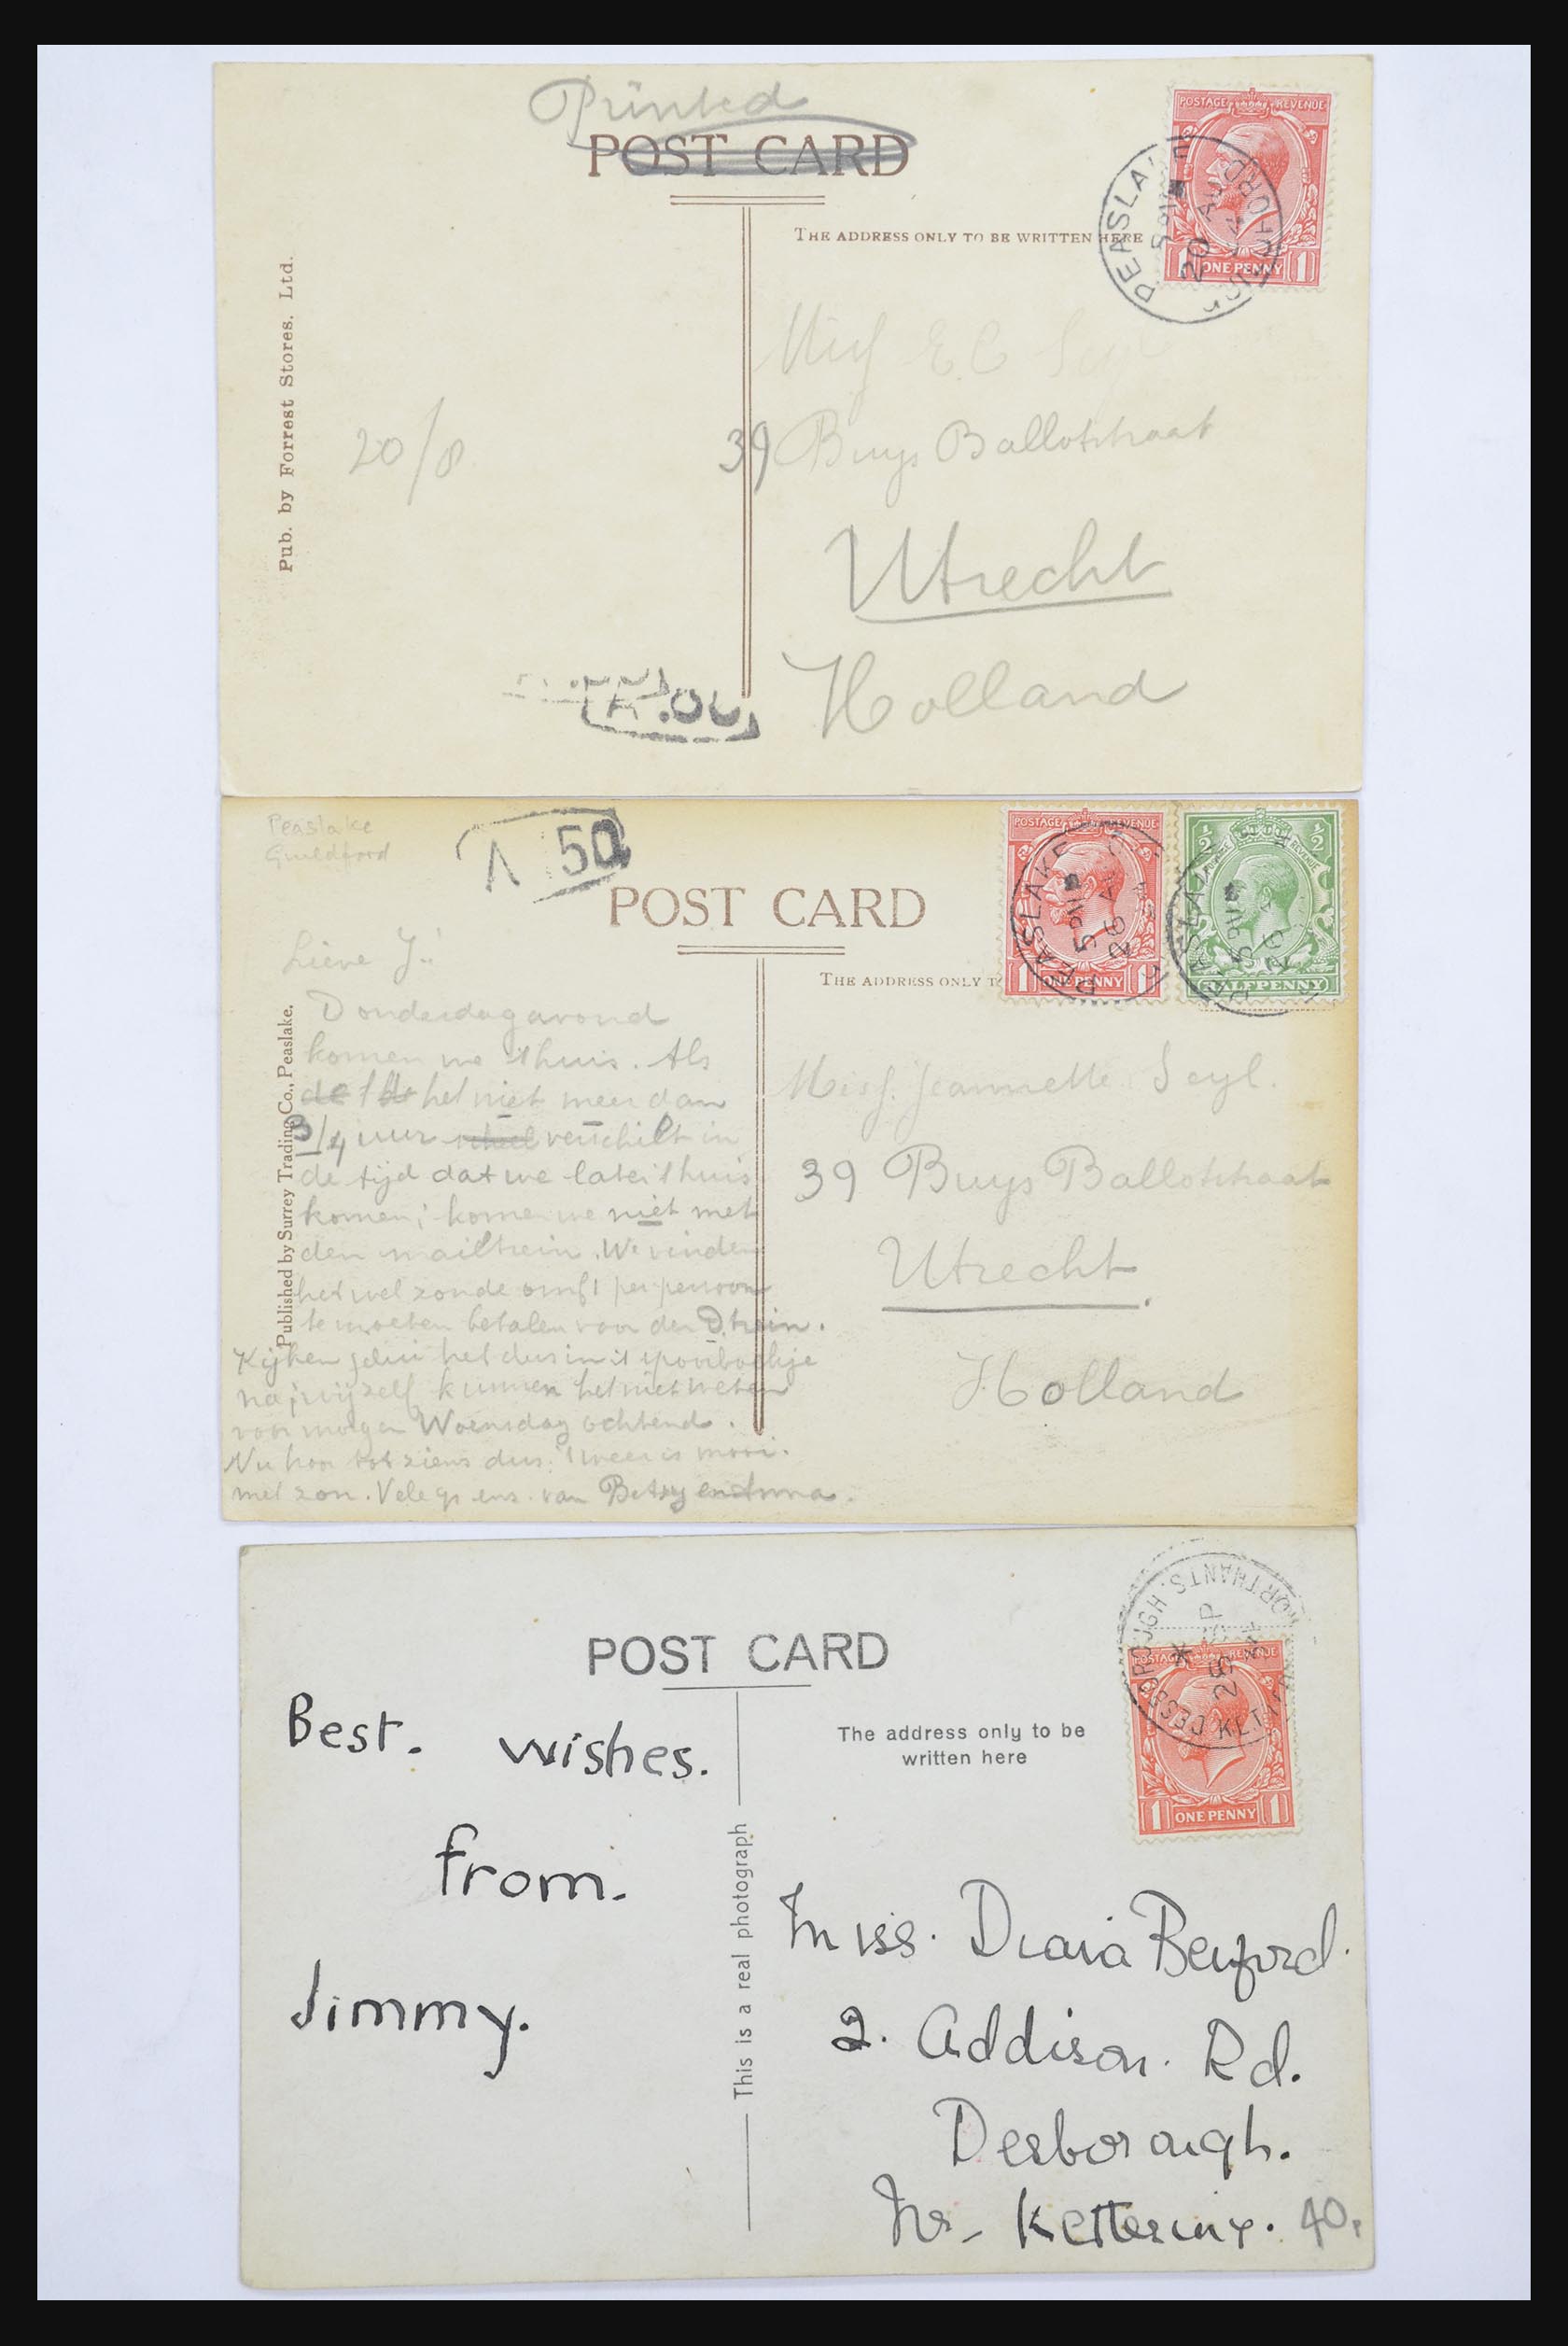 Printed
POST CARD
POSTAGE REVENUE
ONE PENNY
THE ADDRESS ONLY TO BE WRITTEN HERE
Pub. by Forrest Stores. Ltd.
20/8
39 Buys Ballotstraat
Utrecht
Holland
Peaslake
Guildford
50
POST CARD
POSTAGE REVENUE
ONE PENNY
HALFPENNY
PEASLAKE
THE ADDRESS ONLY T
Published by Surrey Trading Co., Peaslake.
Lieve J.!
Donderdagavond
komen we thuis. Als
het niet meer dan
3/4 uur verschilt in
de tijd dat we later thuis
komen; komen we niet met
den mailtrein. We vinden
het wel zonde om f1 per persoon
te moeten betalen voor den D.trein.
Kijken jelui het dus in 't spoorboekje
na; wij zelf kunnen het niet weten
voor morgen Woensdag ochtend.
Nu hoor tot ziens dus. 't weer is mooi.
met zon. Vele gr. van Betsy en Anna.
Miss. Jeannette Seyl.
39 Buys Ballotstraat
Utrecht.
Holland
POST CARD
POSTAGE REVENUE
ONE PENNY
The address only to be
written here
This is a real photograph
Best. wishes.
from.
Jimmy.
Miss.
2. Addison. Rd.
Desborough.
Nr. Kettering. 40,